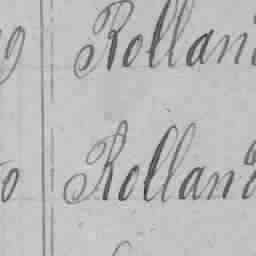 9 Rolland
0 Rolland